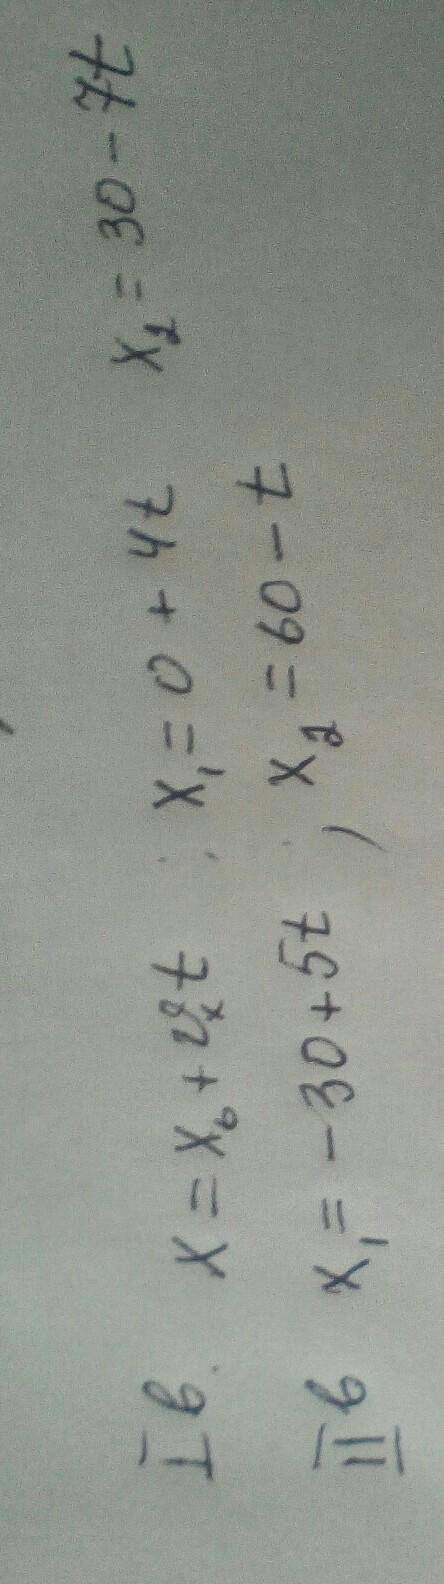 I в. x = x₀ + υₓt ; x₁ = 0 + 4t x₂ = 30 - 7t
II в x₁ = -30 + 5t , x₂ = 60 - t